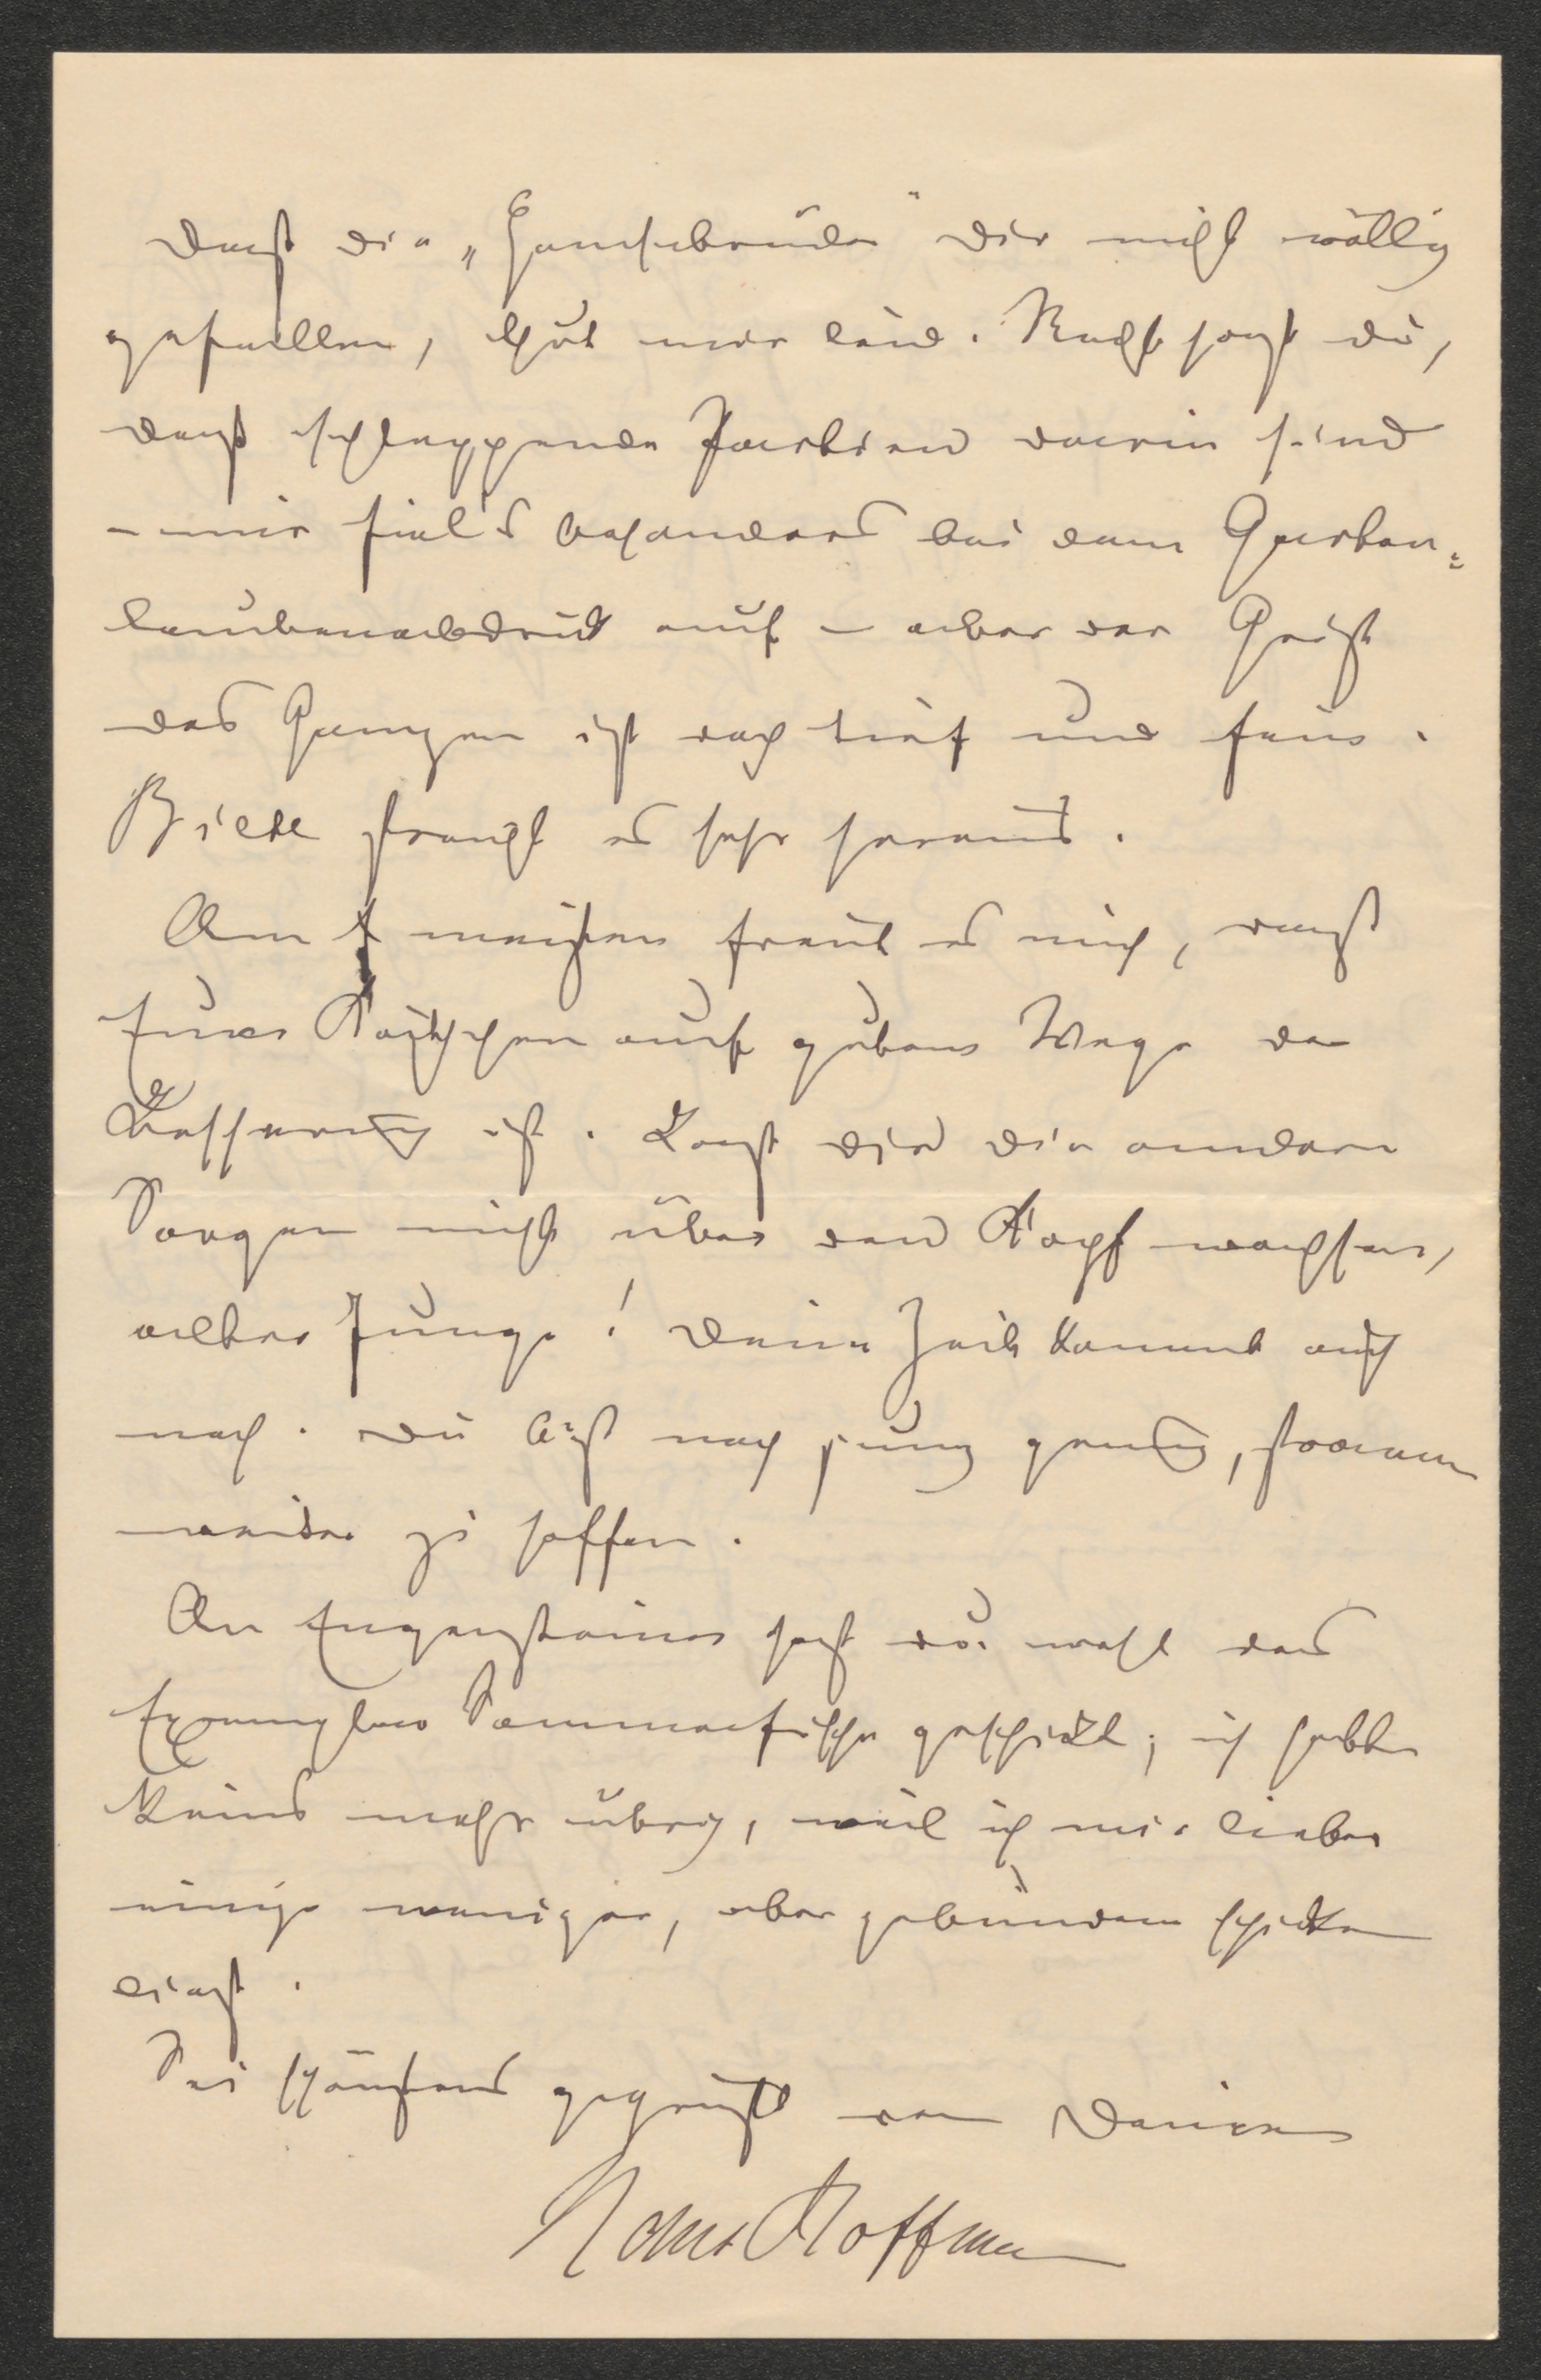 Daß die „Handschuhe“ Dir nicht völlig
gefallen, thut mir leid. Recht hast du,
daß schleppende Partien darin sind
– mir fiel's besonders bei dem Garten-
laubenabdruck auf – aber der Geist
des Ganzen ist doch tief und fein.
Biese streicht es sehr heraus.
Am meisten freut es mich, daß
Euer Käthchen auf gutem Wege der
Besserung ist. Laß dir die anderen
Sorgen nicht über den Kopf wachsen,
alter Junge! Deine Zeit kommt auch
noch. Du bist noch jung genug, stramm
weiter zu hoffen.
An Engensteiner hast du wohl das
Exemplar Sommerfrische geschickt; ich hatte
keins mehr übrig, weil ich mir lieber
einige weniger, aber gebunden schicken
ließ.
Sei schönstens gegrüßt von Deinem
Hans Hoffmann